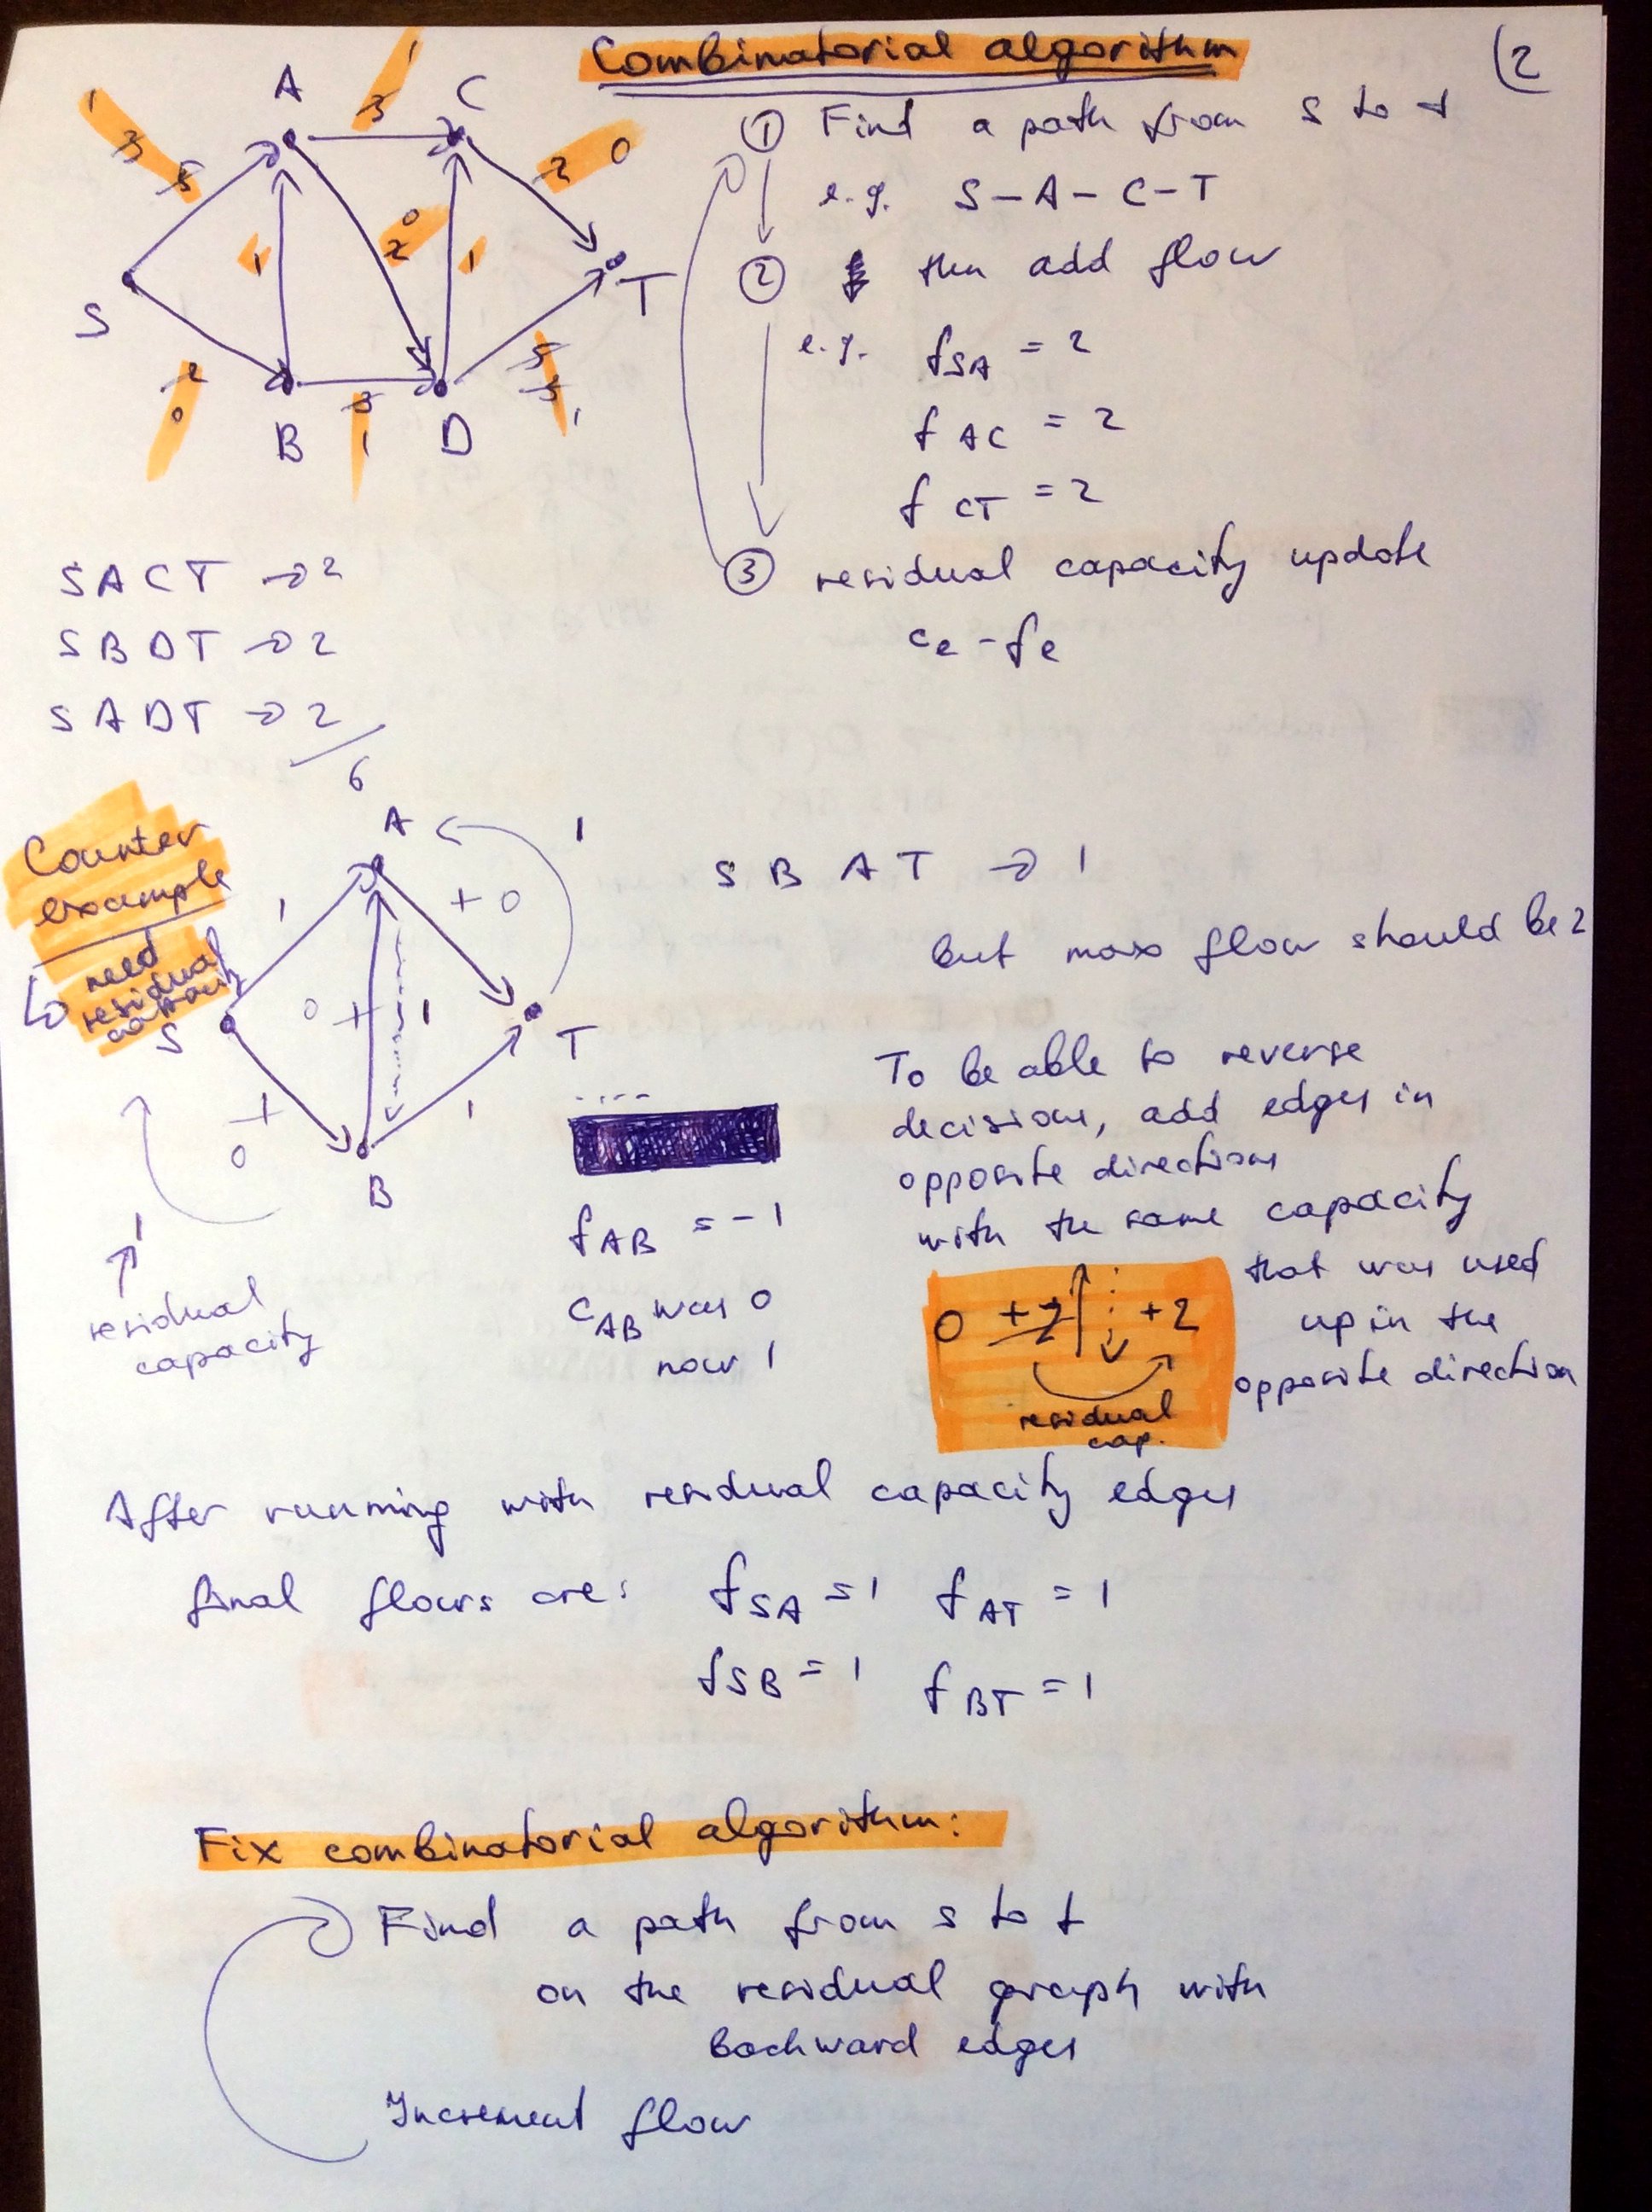 Combinatorial algorithm
(2
A 3 1 C
1 3 5
2 0
1
0 2
1
S
T
2 0
B
3 1
D
5 3 1
① Find a path from s to t
e.g. S-A-C-T
② then add flow
e.g. f SA = 2
f AC = 2
f CT = 2
③ residual capacity update
ce - fe
SACT → 2
SBDT → 2
SADT → 2
6
Counter
example
need
residual
capacity
A
1
1
+ 0
S
0 + 1
T
1
0
1
B
1
residual
capacity
SBAT → 1
but max flow should be 2
To be able to reverse
decision, add edges in
opposite directions
with the same capacity
that was used
up in the
opposite direction
f AB = -1
C AB was 0
now 1
0 +2 +2
residual
cap.
After running with residual capacity edges
final flows are: f SA = 1 f AT = 1
f SB = 1 f BT = 1
Fix combinatorial algorithm:
Find a path from s to t
on the residual graph with
backward edges
Increment flow